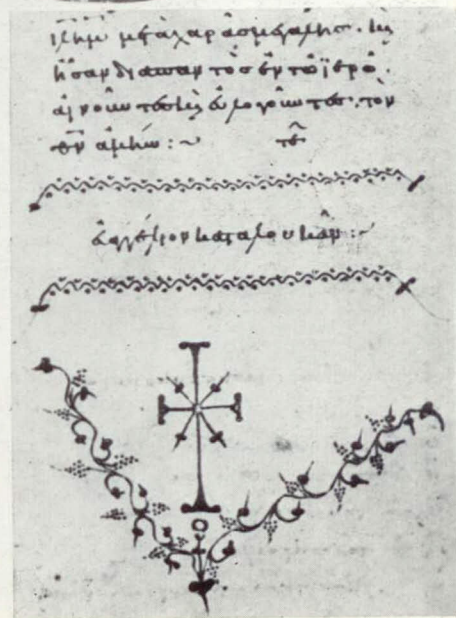 ιλημ μετὰ χαρᾶς μεγάλης. καὶ
ἦσαν διαπαντὸς ἐν τῶ ἱερῶ
αἰνοῦντες καὶ εὐλογοῦντες. τὸν
θν ἀμήν :~ τε
εὐαγγέλιον κατὰ λουκᾶν :~